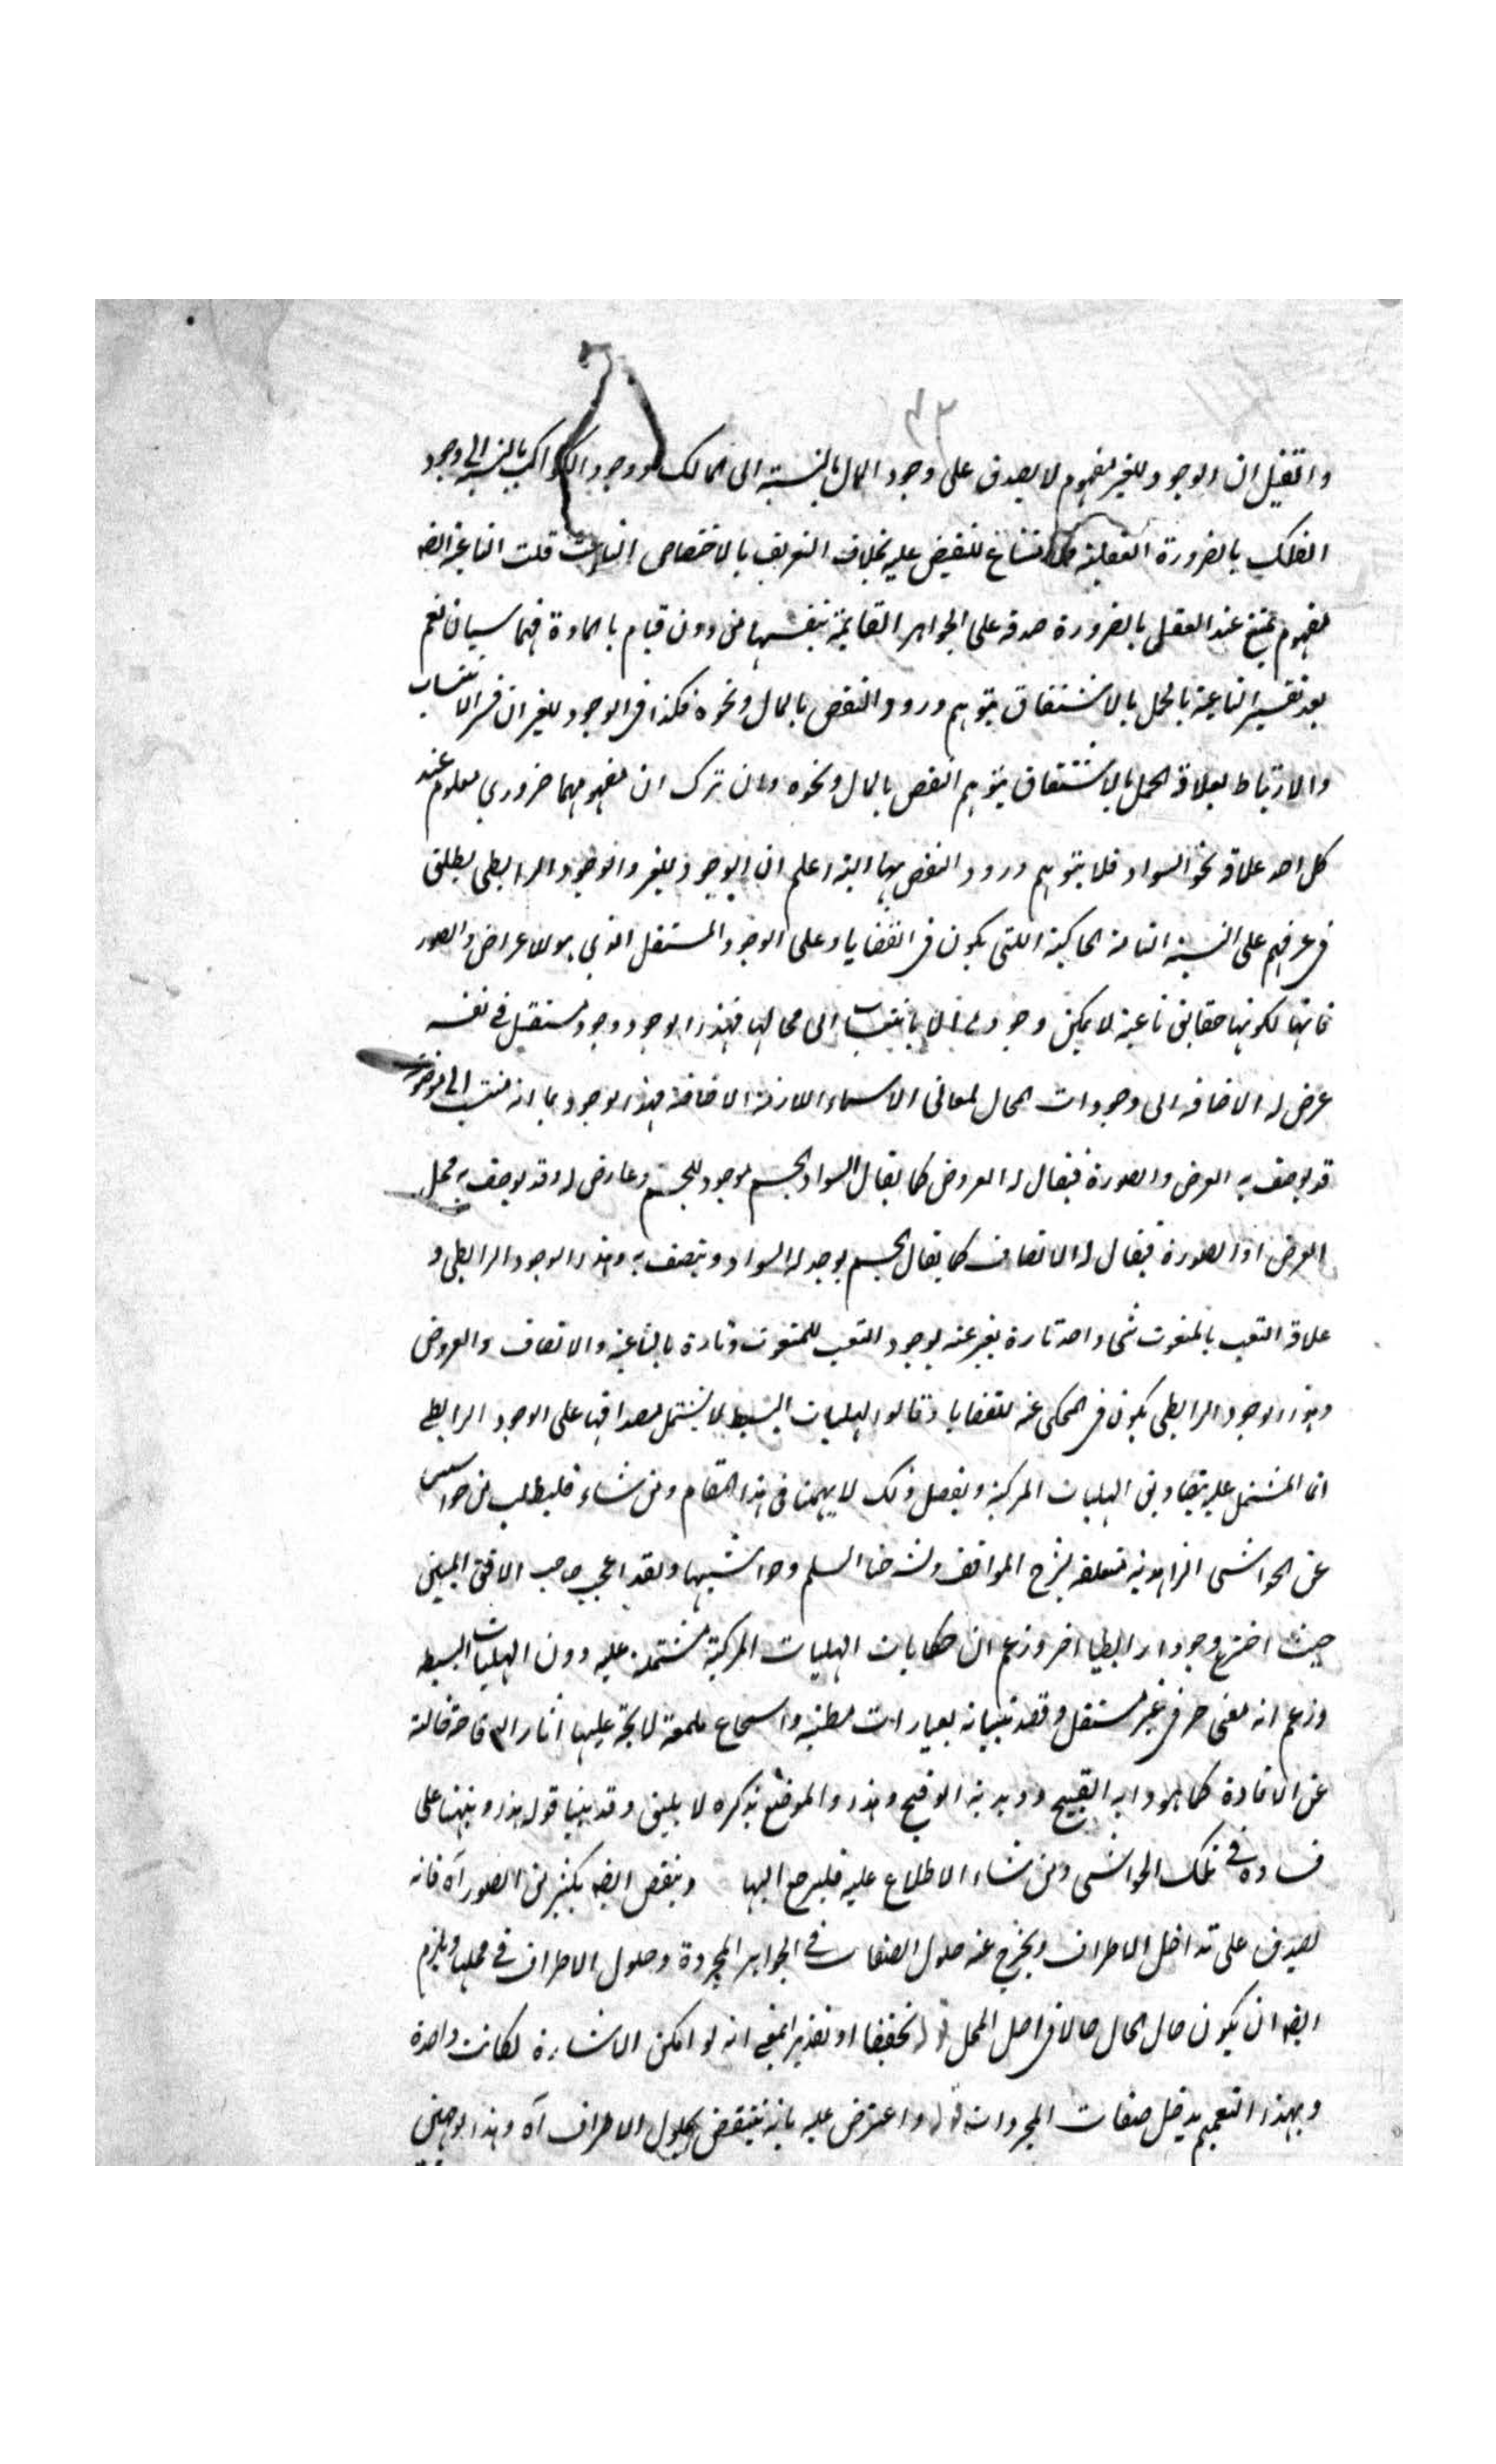 ٤٣
وان قيل ان الوجود للغير مفهوم لا يصدق على وجود المال بالنسبة الى المالك ووجود الكواكب بالنسبة الى وجود
الفلك بالضرورة العقلية فلا مساغ للنقض عليه بخلاف التعريف بالاختصاص الناعت قلت الناعتية ايضه
مفهوم يمتنع عند العقل بالضرورة صدقه على الجواهر القايمة بنفسها من دون قيام بالمادة فهما سيان نعم
بعد تفسير الناعتية بالحمل بالاشتقاق يتوهم ورود النقض بالمال ونحوه فكذا فى الوجود للغير ان فسر الانتساب
والارتباط بعلاقة الحمل بالاشتقاق يتوهم النقض بالمال ونحوه وان ترك ان مفهومهما ضروري معلوم عند
كل احد علاقة نحو السواد فلا يتوهم ورود النقض بهما البتة اعلم ان الوجود للغير والوجود الرابطى يطلق
فى عرفهم على النسبة التامة الحاكية اللتى يكون فى القضايا وعلى الوجود المستقل الذي هو للاعراض والصور
فانها لكونها حقايق ناعتية لا يمكن وجودها الا بانتساب الى محالها فهذا الوجود وجود مستقل فى نفسه
عرض له الاضافة الى وجودات المحال لمعانى الاسماء اللازمة الاضافة فهذا الوجود بما انه منتسب الى موضوع
قد يوصف به العرض والصورة فيقال له العروض كما يقال السواد بجسم موجود للجسم وعارض له وقد يوصف به محل
العرض او الصورة فيقال له الاتصاف كما يقال الجسم يوجد له السواد ويتصف به وهذا الوجود الرابطى و
علاقة النعت بالمنعوت شى واحد تارة يعبر عنه بوجود النعت للمنعوت وتارة بالناعتية والاتصاف والعروض
وهذا الوجود الرابطى يكون فى المحكى عنه للقضايا وقالوا الهليات البسيطة لا يشتمل مصداقها على الوجود الرابطى
انما المشتمل عليه مصاديق الهليات المركبة وتفصيل ذلك لا يهمنا فى هذا المقام ومن شاء فليطلب من حواشى
عن الحواشى الزاهدية متعلقة بشرح المواقف وشرحنا السلم وحواشيها ولقد اعجب صاحب الافق المبين
حيث اخترع وجودا رابطيا اخر وزعم ان حكايات الهليات المركبة مشتملة عليه دون الهليات البسيطه
وزعم انه معنى حرفى غير مستقل وقصد تبيانه بعبارات مطنبة واسجاع ملمعة لايحة عليها اثار الوقاحة خالية
عن الافادة كما هو دابه القبيح وديدنه الوقيح وهذا الموضع بذكره لا يليق وقد بينا قوله هذا ونبهنا على
فساده فى تلك الحواشى ومن شاء الاطلاع عليه فليرجع اليها وينقض ايضه بكثير من الصور آه فانه
يصدق على تداخل الاطراف ويخرج عنه حلول الصفات فى الجواهر المجردة وحلول الاطراف فى محلها ويلزم
ايضه ان يكون حال الحال حالا فى اصل المحل قوله تحقيقا او تقديرا بمعنى انه لو امكن الاشارة لكانت واحدة
وبهذا التعميم يدخل صفات المجردات قوله واعترض عليه بانه ينتقض بحلول الاطراف آه وهذا بوجهين